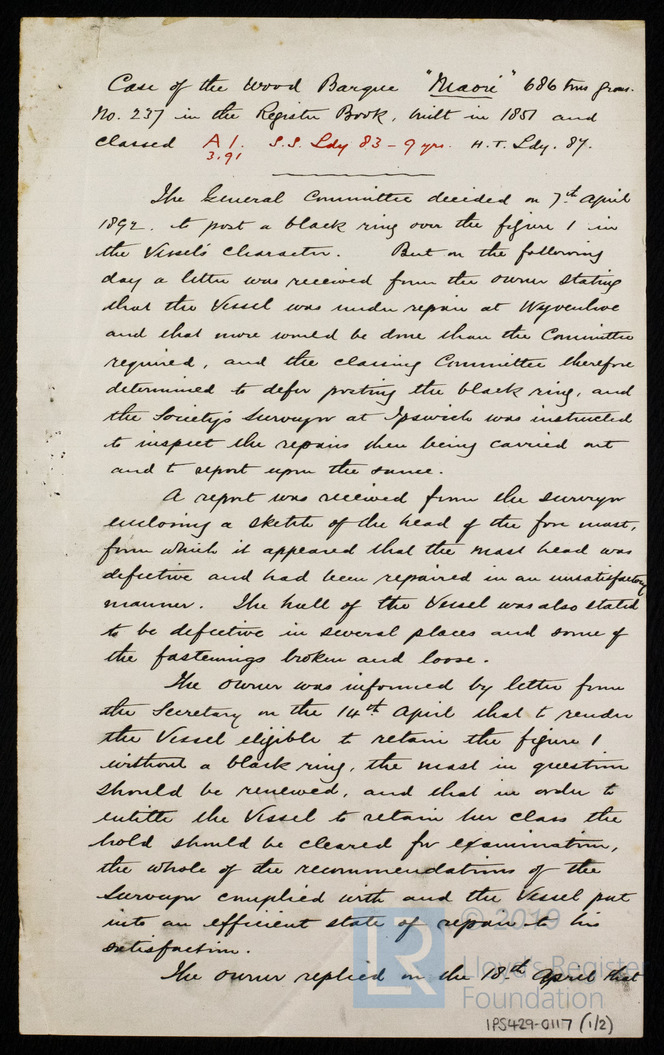 Case of the Wood Barque "Maori" 686 tons gross.
No. 237 in the Register Book, built in 1851 and
classed A1. S.S. Ldy 83 - 9 yrs. H.T. Ldy. 87.
3.91
The General Committee decided on 7th April
1892. to post a black ring over the figure 1 in
the Vessel's character. But on the following
day a letter was received from the owner stating
that the Vessel was under repair at Wyvenhoe
and that more would be done than the Committee
required, and the classing Committee therefore
determined to defer posting the black ring, and
the Society's Surveyor at Ipswich was instructed
to inspect the repairs then being carried out
and to report upon the same.
A report was received from the surveyor
enclosing a sketch of the head of the fore mast,
from which it appeared that the mast head was
defective and had been repaired in an unsatisfactory
manner. The hull of the Vessel was also stated
to be defective in several places and some of
the fastenings broken and loose.
The owner was informed by letter from
the Secretary on the 14th April that to render
the Vessel eligible to retain the figure 1
without a black ring, the mast in question
should be renewed, and that in order to
entitle the Vessel to retain her class the
hold should be cleared for examination,
the whole of the recommendations of the
Surveyor complied with and the Vessel put
into an efficient state of repair to his
satisfaction.
The owner replied on the 18th April that
© 2019
LR Lloyd's Register
Foundation
IPS429-0117 (1/2)